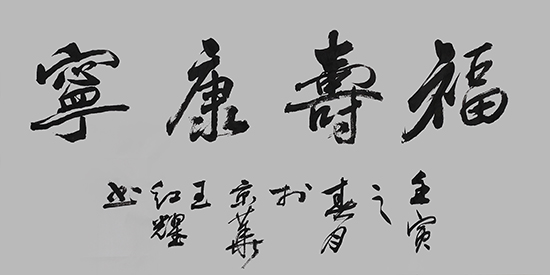 福壽康寧
壬寅之春月於京華王红耀书